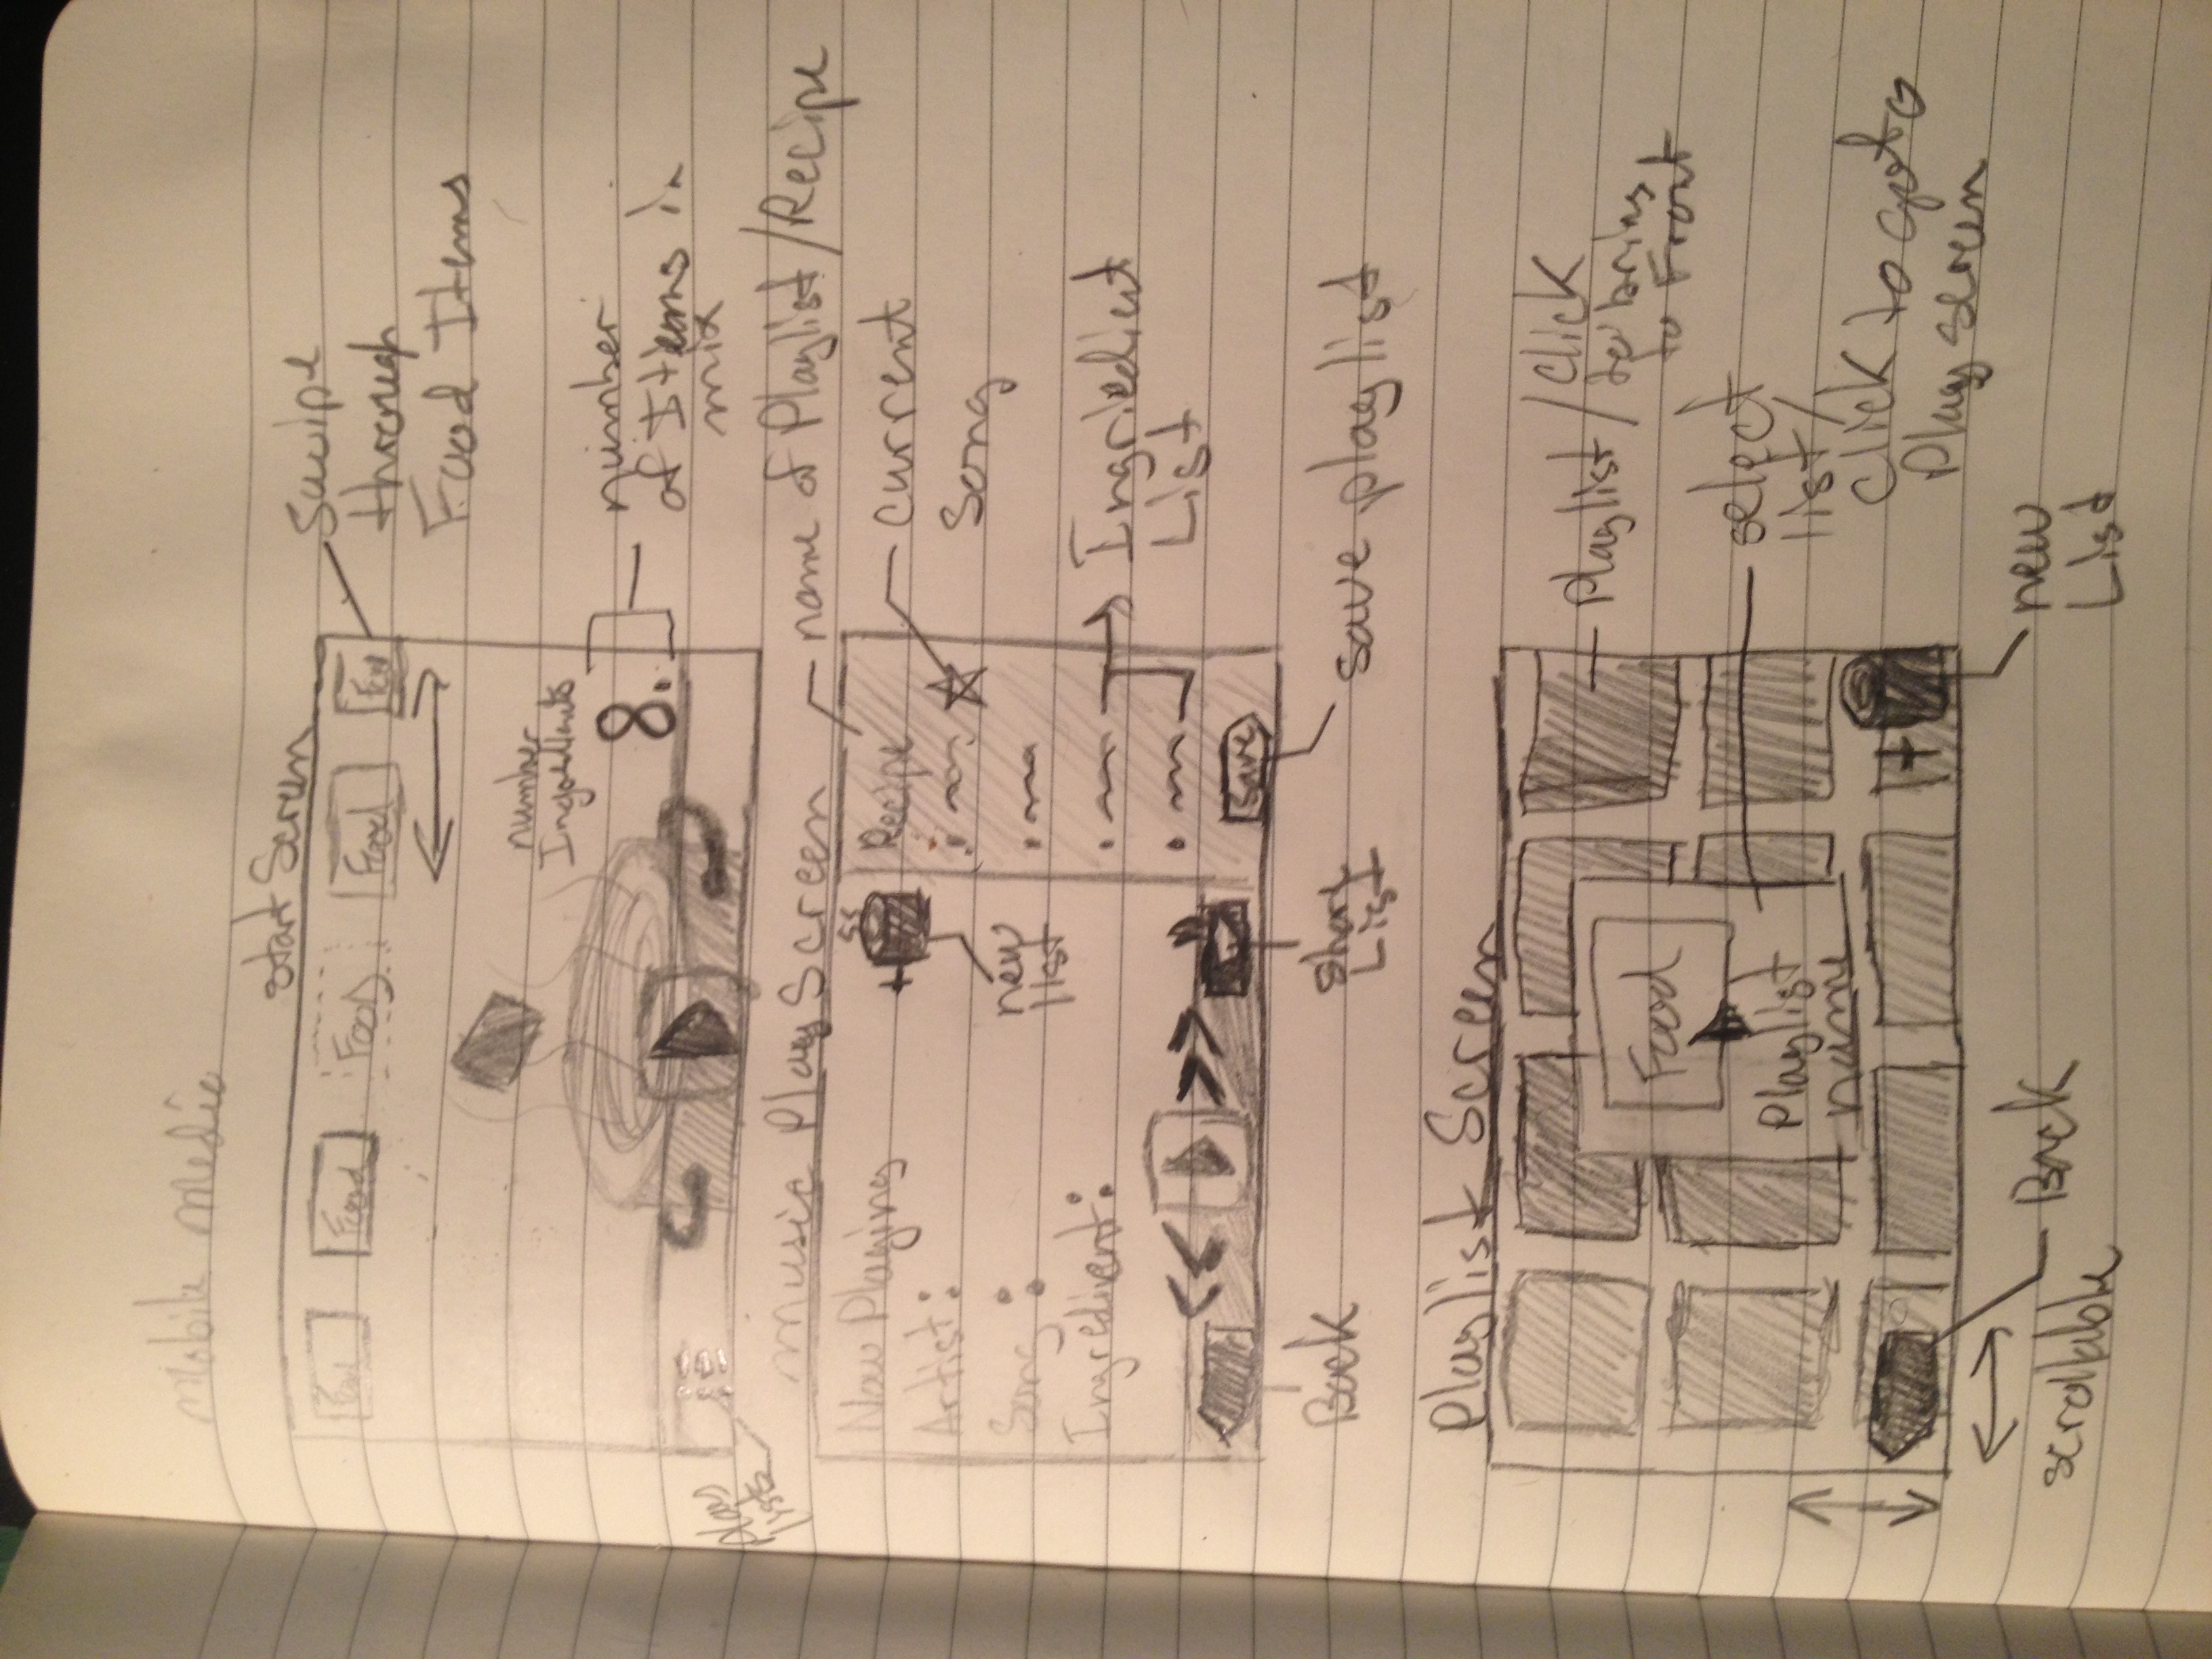 mobile media
start Screen
Food
Food
Food
Swipe
through
Food Items
number
Ingredients
8.
number
of Items in
mix
play
lists
music play Screen
name of Playlist/Recipe
Now Playing
Artist:
Song:
Ingredient:
+
new
list
Recipe
current
Song
Ingriedient
List
save
save playlist
Back
short
List
Playlist Screen
Food
Playlist
name
playlist/click
to bring
to Front
select
list/
click to goto
Play screen
+
new
List
Back
scrollable